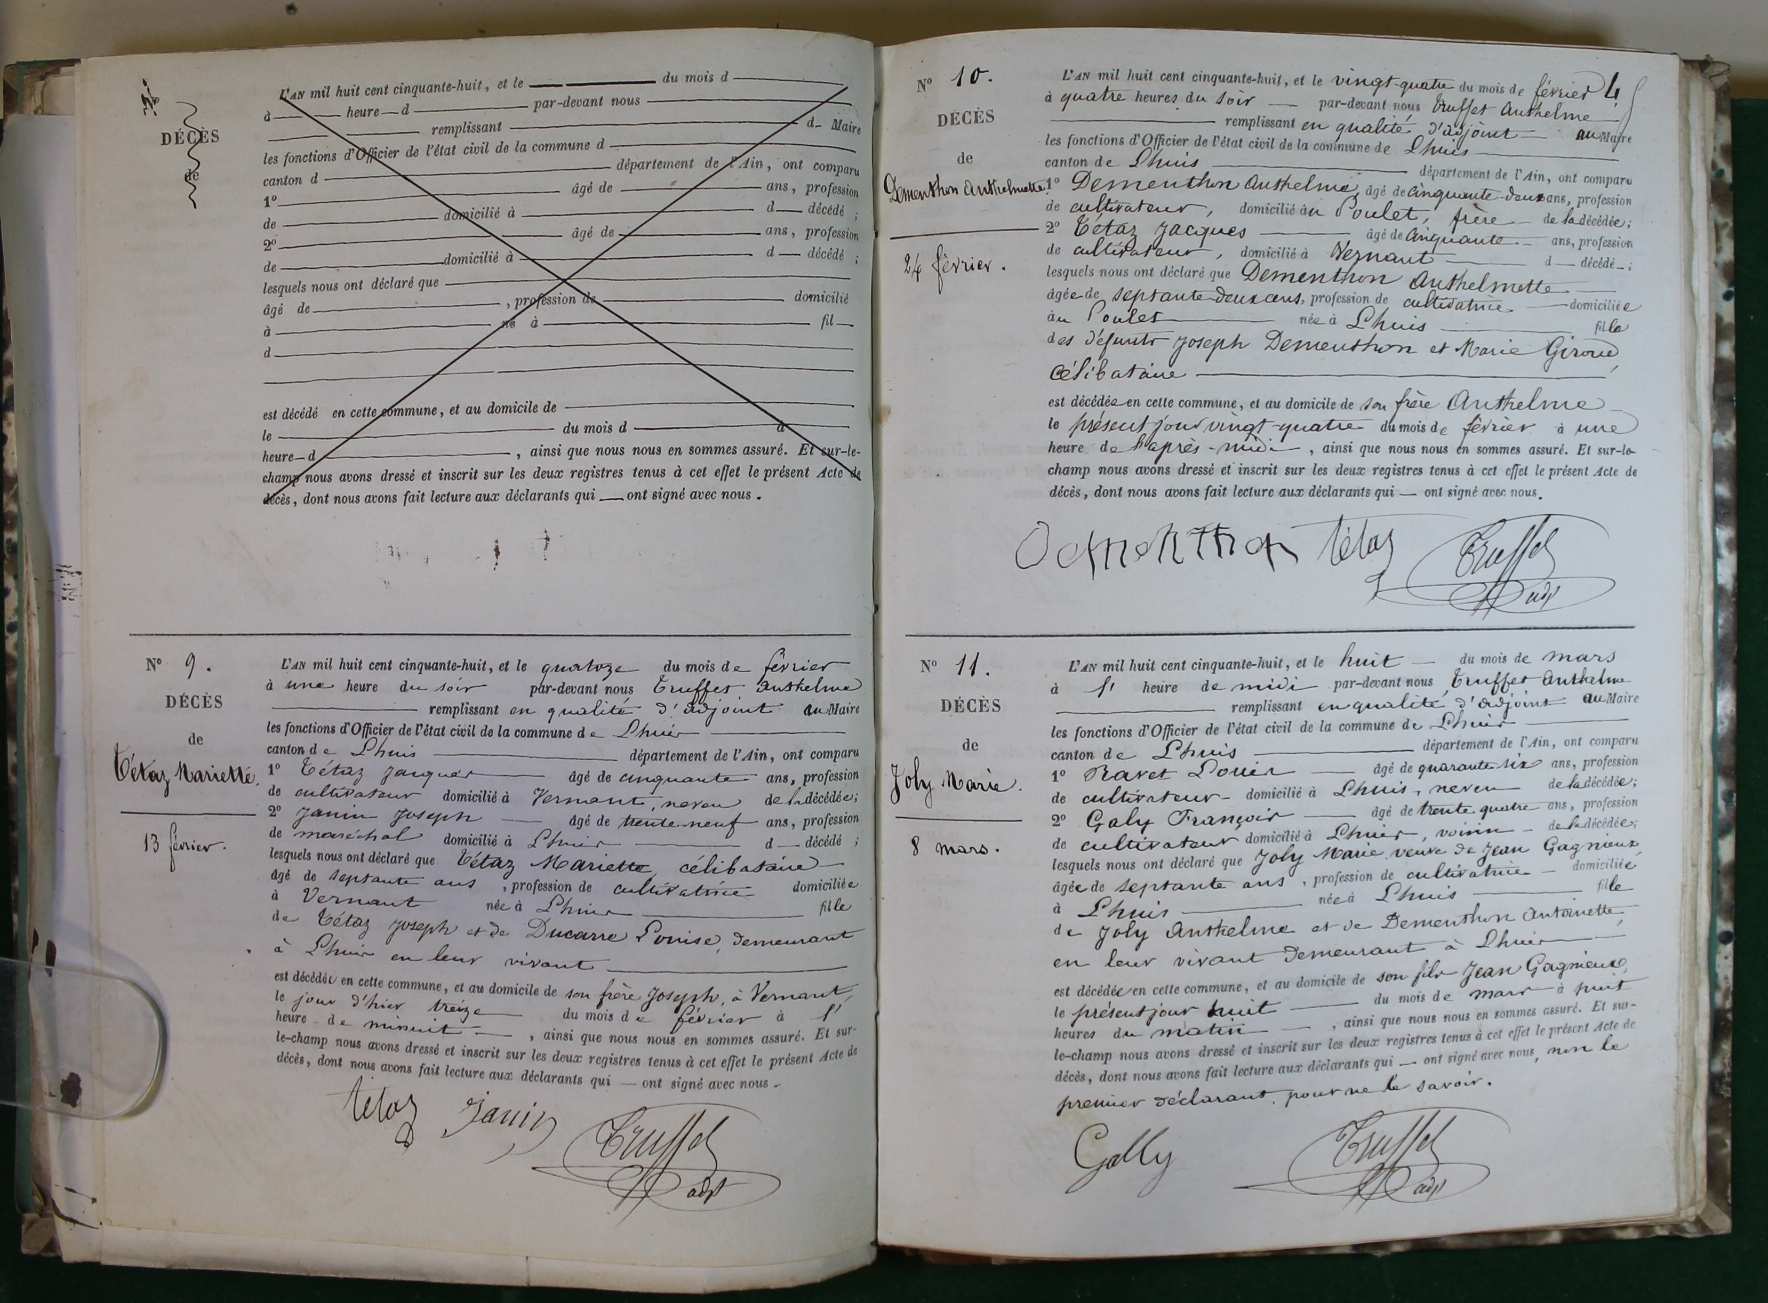 DÉCÈS
de
L'AN mil huit cent cinquante-huit, et le du mois d
à heure d par-devant nous
remplissant d Maire
les fonctions d'Officier de l'état civil de la commune d
canton d département de l'Ain, ont comparu
1° âgé de ans, profession
de domicilié à d décédé ;
2° âgé de ans, profession
de domicilié à d décédé ;
lesquels nous ont déclaré que
âgé de , profession de domicilié
à né à fil
d
est décédé en cette commune, et au domicile de
le du mois d à
heure d , ainsi que nous nous en sommes assuré. Et sur-le-
champ nous avons dressé et inscrit sur les deux registres tenus à cet effet le présent Acte de
décès, dont nous avons fait lecture aux déclarants qui — ont signé avec nous.
N° 9.
DÉCÈS
de
Tétaz Mariette.
13 février.
L'AN mil huit cent cinquante-huit, et le quatorze du mois de février
à une heure du soir par-devant nous Truffet Anthelme
remplissant en qualité d'adjoint au Maire
les fonctions d'Officier de l'état civil de la commune de Lhuis
canton de Lhuis département de l'Ain, ont comparu
1° Tétaz Jacques âgé de cinquante ans, profession
de cultivateur domicilié à Vernant, neveu de la décédée;
2° Janin Joseph âgé de trente-neuf ans, profession
de maréchal domicilié à Lhuis d décédé ;
lesquels nous ont déclaré que Tétaz Mariette, célibataire
âgé de septante ans , profession de cultivatrice domiciliée
à Vernant née à Lhuis fille
de Tétaz Joseph et de Ducarre Louise, demeurant
à Lhuis en leur vivant
est décédée en cette commune, et au domicile de son frère Joseph, à Vernant,
le jour d'hier treize du mois de février à l'
heure de minuit , ainsi que nous nous en sommes assuré. Et sur-
le-champ nous avons dressé et inscrit sur les deux registres tenus à cet effet le présent Acte de
décès, dont nous avons fait lecture aux déclarants qui — ont signé avec nous.
Tétaz Janin Truffet
adjt
N° 10.
DÉCÈS
de
Dementhon Anthelmette.
24 février.
4
L'AN mil huit cent cinquante-huit, et le vingt-quatre du mois de février
à quatre heures du soir par-devant nous Truffet Anthelme
remplissant en qualité d'adjoint au Maire
les fonctions d'Officier de l'état civil de la commune de Lhuis
canton de Lhuis département de l'Ain, ont comparu
1° Dementhon Anthelme, âgé de cinquante-deux ans, profession
de cultivateur, domicilié au Poulet, frère de la décédée;
2° Tétaz Jacques âgé de cinquante ans, profession
de cultivateur, domicilié à Vernant d décédé ;
lesquels nous ont déclaré que Dementhon Anthelmette
âgée de septante-deux ans, profession de cultivatrice domiciliée
au Poulet née à Lhuis fille
des défunts Joseph Dementhon et Marie Giroud,
célibataire
est décédée en cette commune, et au domicile de son frère Anthelme
le présent jour vingt-quatre du mois de février à une
heure de l'après-midi , ainsi que nous nous en sommes assuré. Et sur-le-
champ nous avons dressé et inscrit sur les deux registres tenus à cet effet le présent Acte de
décès, dont nous avons fait lecture aux déclarants qui — ont signé avec nous.
Dementhon Tétaz Truffet
adjt
N° 11.
DÉCÈS
de
Joly Marie.
8 mars.
L'AN mil huit cent cinquante-huit, et le huit du mois de mars
à l' heure de midi par-devant nous Truffet Anthelme
remplissant en qualité d'adjoint au Maire
les fonctions d'Officier de l'état civil de la commune de Lhuis
canton de Lhuis département de l'Ain, ont comparu
1° Ravet Louis âgé de quarante-six ans, profession
de cultivateur domicilié à Lhuis, neveu de la décédée;
2° Galy François âgé de trente quatre ans, profession
de cultivateur domicilié à Lhuis, voisin de la décédée;
lesquels nous ont déclaré que Joly Marie, veuve de Jean Gagnieux
âgée de septante ans , profession de cultivatrice domiciliée
à Lhuis née à Lhuis fille
de Joly Anthelme et de Dementhon Antoinette,
en leur vivant demeurant à Lhuis
est décédée en cette commune, et au domicile de son fils Jean Gagnieux,
le présent jour huit du mois de mars à huit
heures du matin , ainsi que nous nous en sommes assuré. Et sur-
le-champ nous avons dressé et inscrit sur les deux registres tenus à cet effet le présent Acte de
décès, dont nous avons fait lecture aux déclarants qui — ont signé avec nous, non le
premier déclarant, pour ne le savoir.
Gally Truffet
adjt